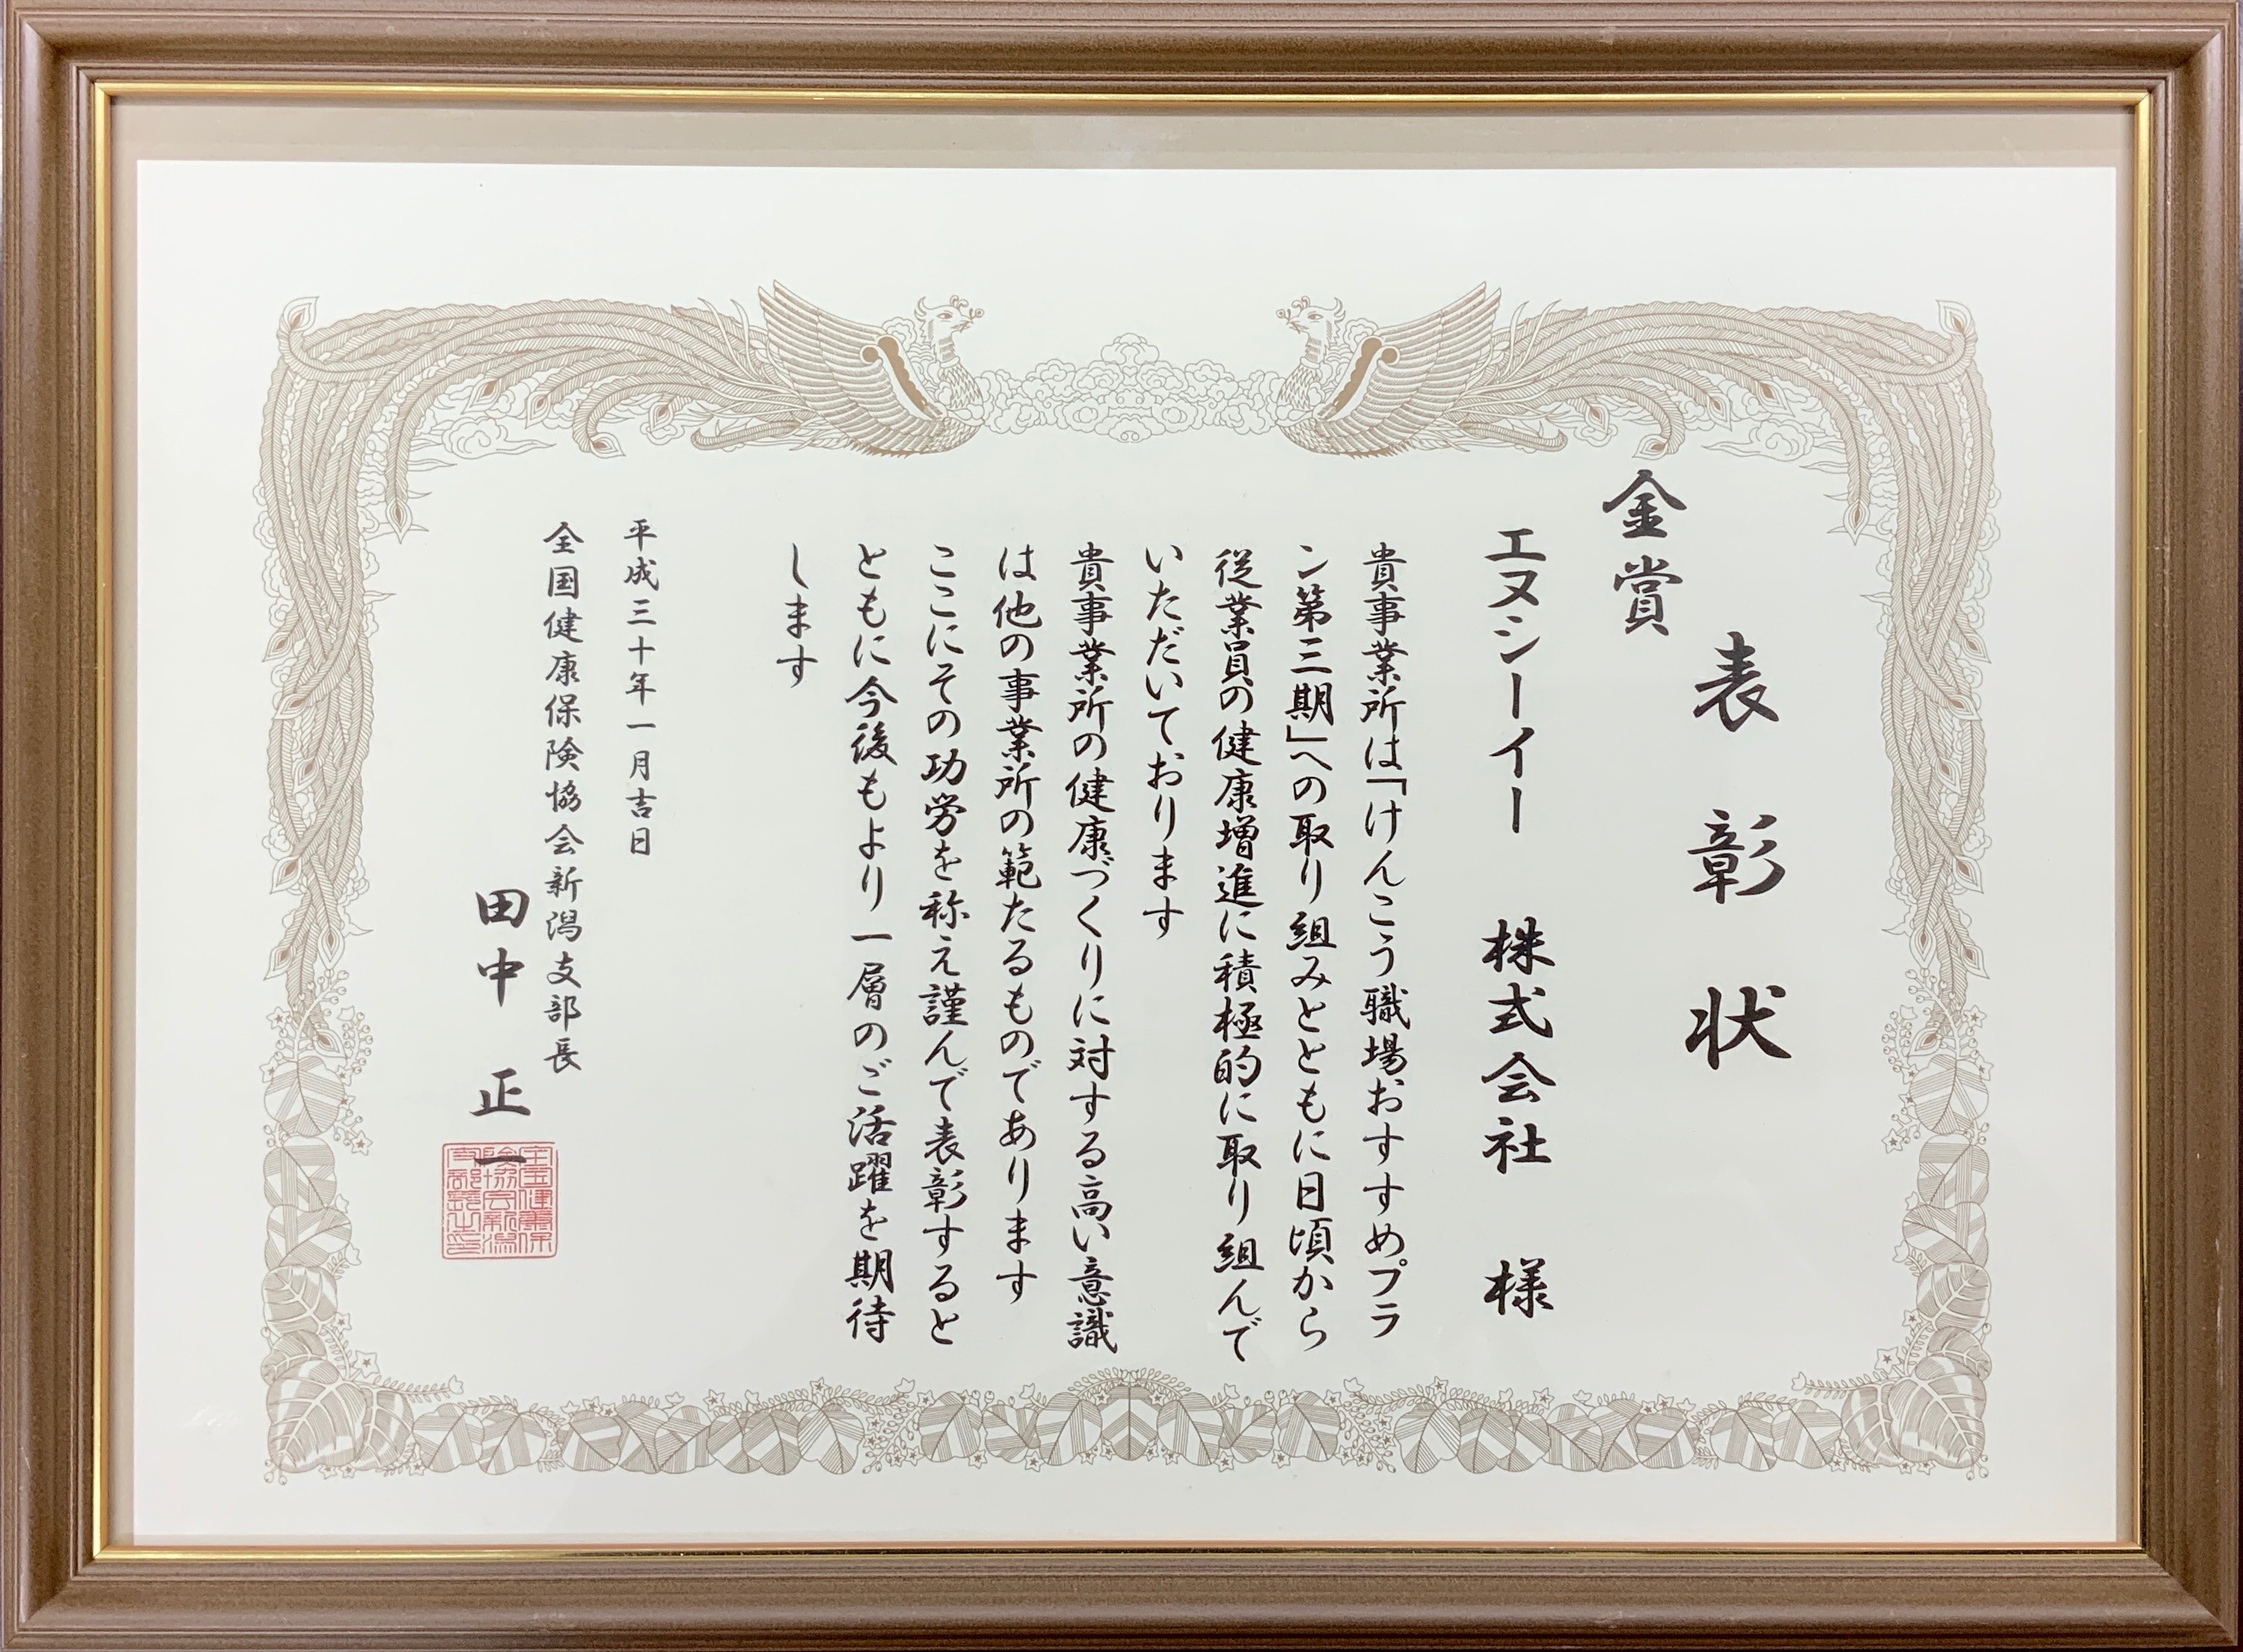 表彰状
金賞
エヌシーイー 株式会社 様
貴事業所は「けんこう職場おすすめプラ
ン第三期」への取り組みとともに日頃から
従業員の健康増進に積極的に取り組んで
いただいております
貴事業所の健康づくりに対する高い意識
は他の事業所の範たるものであります
ここにその功労を称え謹んで表彰すると
ともに今後もより一層のご活躍を期待
します
平成三十年一月吉日
全国健康保険協会新潟支部長
田中 正一